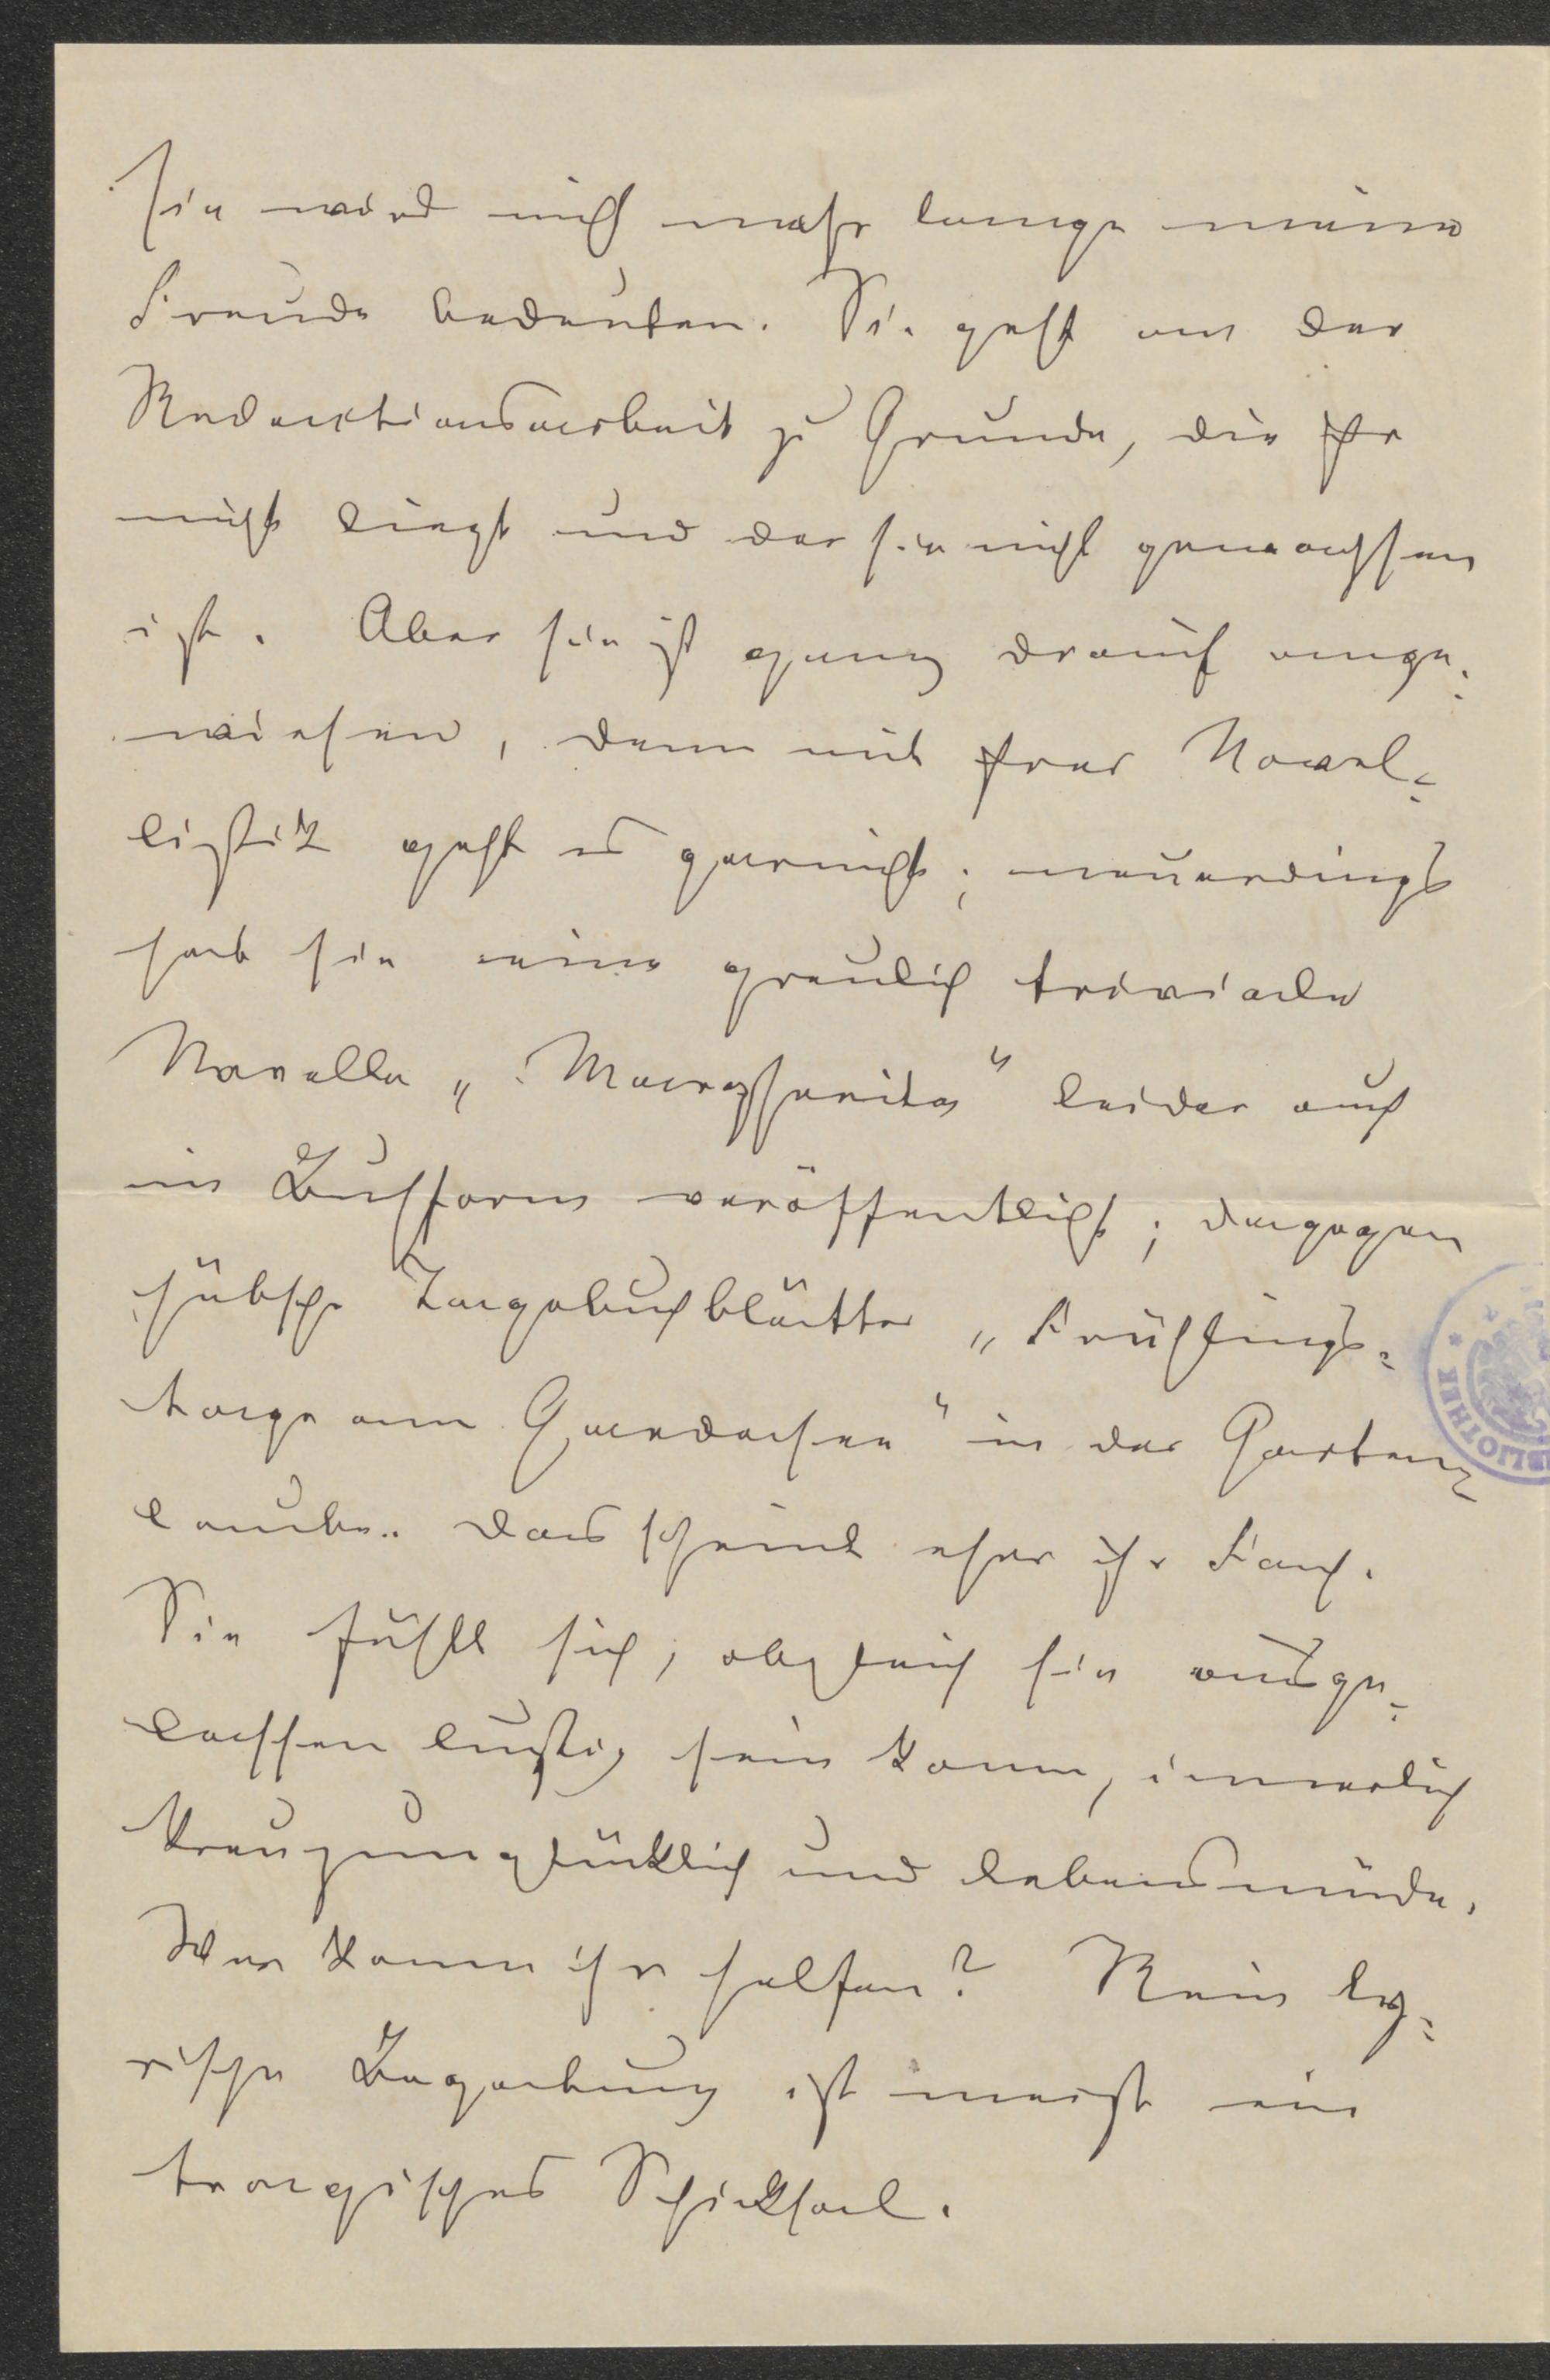 sie wird nich mehr lange meine
Freude bedeuten. Sie geht an der
Redacktionsarbeit zu Grunde, die ihr
nicht liegt und der sie nicht gewachsen
ist. Aber sie ist ganz drauf ange-
wiesen, denn mit ihrer Novel-
listik geht es garnicht; neuerdings
hat sie eine greulich triviale
Novelle „Margherita" leider auch
in Buchform veröffentlicht; dagegen
hübsche Tagebuchblätter „Frühlings-
tage am Gardasee" in der Garten-
laube. Das scheint eher ihr Fach.
Sie fühlt sich, obgleich sie ausge-
lassen lustig sein kann, innerlich
kreuzunglücklich und lebensmüde.
Wer kann ihr helfen? Rein ly-
rische Begabung ist meist ein
tragisches Schicksal.
BIBLIOTHEK